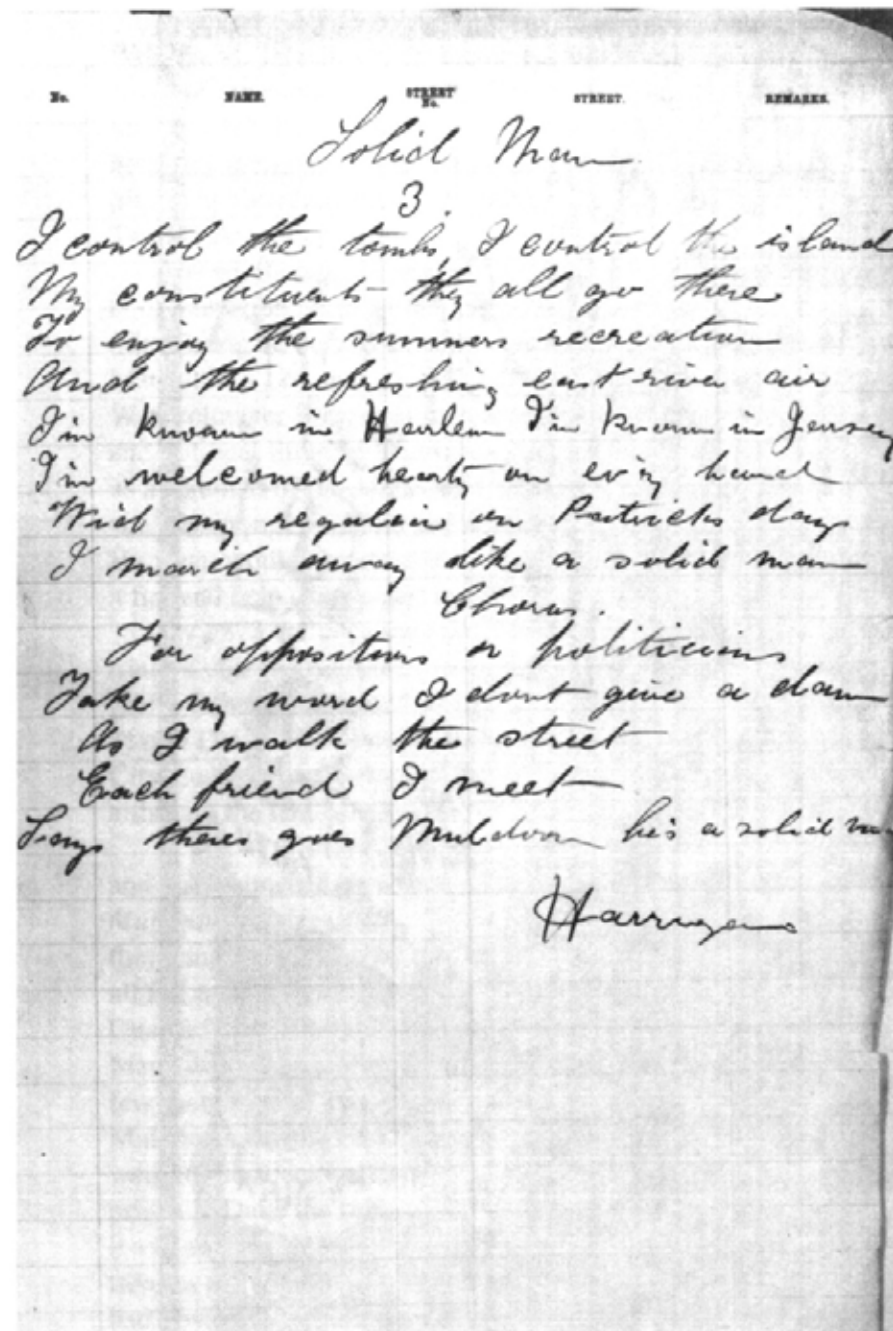 No. NAME. STREET No. STREET. REMARKS.
Solid Man
3.
I control the tombs, I control the island
My constituents they all go there
To enjoy the summers recreation
And the refreshing east river air
I'm known in Harlem I'm known in Jersey
I'm welcomed hearty on ev'ry hand
Wid my regalia on Patricks day
I march away like a solid man
Chorus.
For opposition or politicians
Take my word I dont give a dam
As I walk the street
Each friend I meet
Says theres goes Muldoon he's a solid
Harrigan